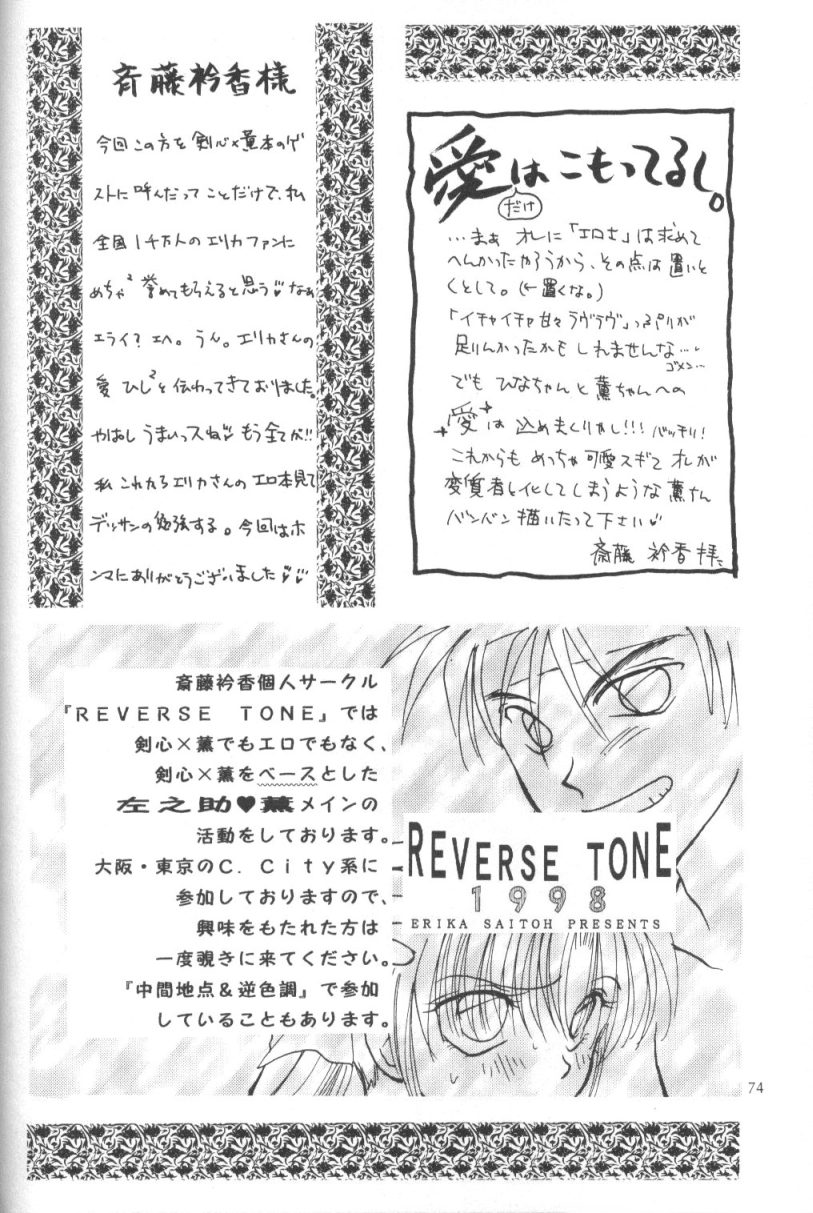 斉藤衿香様
今回この方を剣心×薫本のゲ
ストに呼んだってことだけで、私
全国1千万人のエリカファンに
めちゃ²誉めてもらえると思う♡なぁ
エライ?エヘ。うん。エリカさんの
愛ひし²と伝わってきておりました。
やはしうまいっスね♡もう全てが!!
私これからエリカさんのエロ本見て
デッサンの勉強する。今回はホ
ンマにありがとうございました♡♡
愛はこもってるし。
だけ
…まぁオレに「エロさ」は求めて
へんかったやろうから、その点は置いと
くとして。(←置くな。)
「イチャイチャ甘々ラヴラヴ」っぷりが
足りんかったかもしれませんな…
ゴメン…
でもひなちゃんと薫ちゃんへの
愛は込めまくりやし!!!バッチリ!
これからもめっちゃ可愛スギて オレが
変質者と化してしまうような薫さん
バンバン描いたって下さい♡
斎藤衿香拝
斎藤衿香個人サークル
『REVERSE TONE』では
剣心×薫でもエロでもなく、
剣心×薫をベースとした
左之助♥薫メインの
活動をしております。
大阪・東京のC.City系に
参加しておりますので、
興味をもたれた方は
一度覗きに来てください。
『中間地点&逆色調』で参加
していることもあります。
REVERSE TONE
1998
ERIKA SAITOH PRESENTS
74